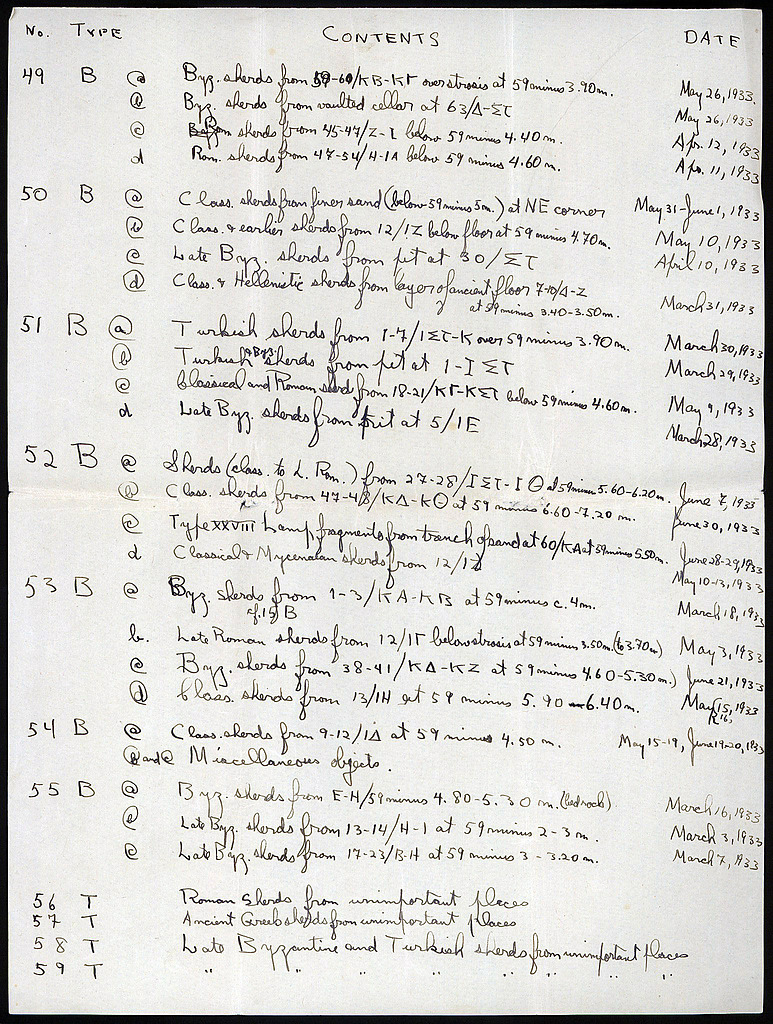 No. TYPE CONTENTS DATE
49 B ⓐ Byz. sherds from 59-60/ΚΒ-ΚΓ over strosis at 59 minus 3.90m. May 26, 1933.
ⓑ Byz. sherds from vaulted cellar at 63/Δ-ΣΤ May 26, 1933
ⓒ Rom sherds from 45-47/Ζ-Ι below 59 minus 4.40m. Apr. 12, 1933
d Rom. sherds from 47-54/Η-ΙΑ below 59 minus 4.60m. Apr. 11, 1933
50 B ⓐ Class. sherds from finer sand (below 59 minus 5m.) at NE corner May 31-June 1, 1933
ⓑ Class. & earlier sherds from 12/ΙΖ below floor at 59 minus 4.70m. May 10, 1933
ⓒ Late Byz. sherds from pit at 30/ΣΤ April 10, 1933
ⓓ Class. & Hellenistic sherds from layer of ancient floor 7-10/Δ-Ζ
at 59 minus 3.40-3.50m. March 31, 1933
51 B ⓐ Turkish sherds from 1-7/ΙΣΤ-Κ over 59 minus 3.90m. March 30, 1933
ⓑ Turkish & Byz. sherds from pit at 1-Ι ΣΤ March 29, 1933
ⓒ Classical and Roman sherd from 18-21/ΚΓ-ΚΣΤ below 59 minus 4.60m. May 9, 1933
d Late Byz. sherds from pit at 5/ΙΕ March 28, 1933
52 B ⓐ Sherds (class. to L. Rom.) from 27-28/ΙΣΤ-ΙΘ at 59 minus 5.60-6.20m. June 7, 1933
ⓑ Class. sherds from 47-48/ΚΔ-ΚΘ at 59 minus 6.60-7.20m. June 30, 1933
ⓒ Type XXVIII Lamp fragments from trench of sand at 60/ΚΑ at 59 minus 5.50m. June 28-29, 1933
d Classical & Mycenaean sherds from 12/ΙΖ May 10-13, 1933
53 B ⓐ Byz. sherds from 1-3/ΚΑ-ΚΒ at 59 minus c. 4m. March 18, 1933
cf. 15, B
b. Late Roman sherds from 12/ΙΓ below strosis at 59 minus 3.50m. (to 3.70m) May 3, 1933
ⓒ Byz. sherds from 38-41/ΚΔ-ΚΖ at 59 minus 4.60-5.30m.) June 21, 1933
ⓓ Class. sherds from 13/ΙΗ at 59 minus 5.90-6.40m. May 15, 1933
& 16,
54 B ⓐ Class. sherds from 9-12/ΙΔ at 59 minus 4.50m. May 15-19, June 19-20, 1933
ⓑ and ⓒ Miscellaneous objects.
55 B ⓐ Byz. sherds from Ε-Η/59 minus 4.80-5.30m. (bedrock) March 16, 1933
ⓑ Late Byz. sherds from 13-14/Η-Ι at 59 minus 2-3m. March 3, 1933
ⓒ Late Byz. sherds from 17-23/Β-Η at 59 minus 3-3.20m. March 7, 1933
56 T Roman sherds from unimportant places
57 T Ancient Greek sherds from unimportant places
58 T Late Byzantine and Turkish sherds from unimportant places
59 T " " " " " " " "